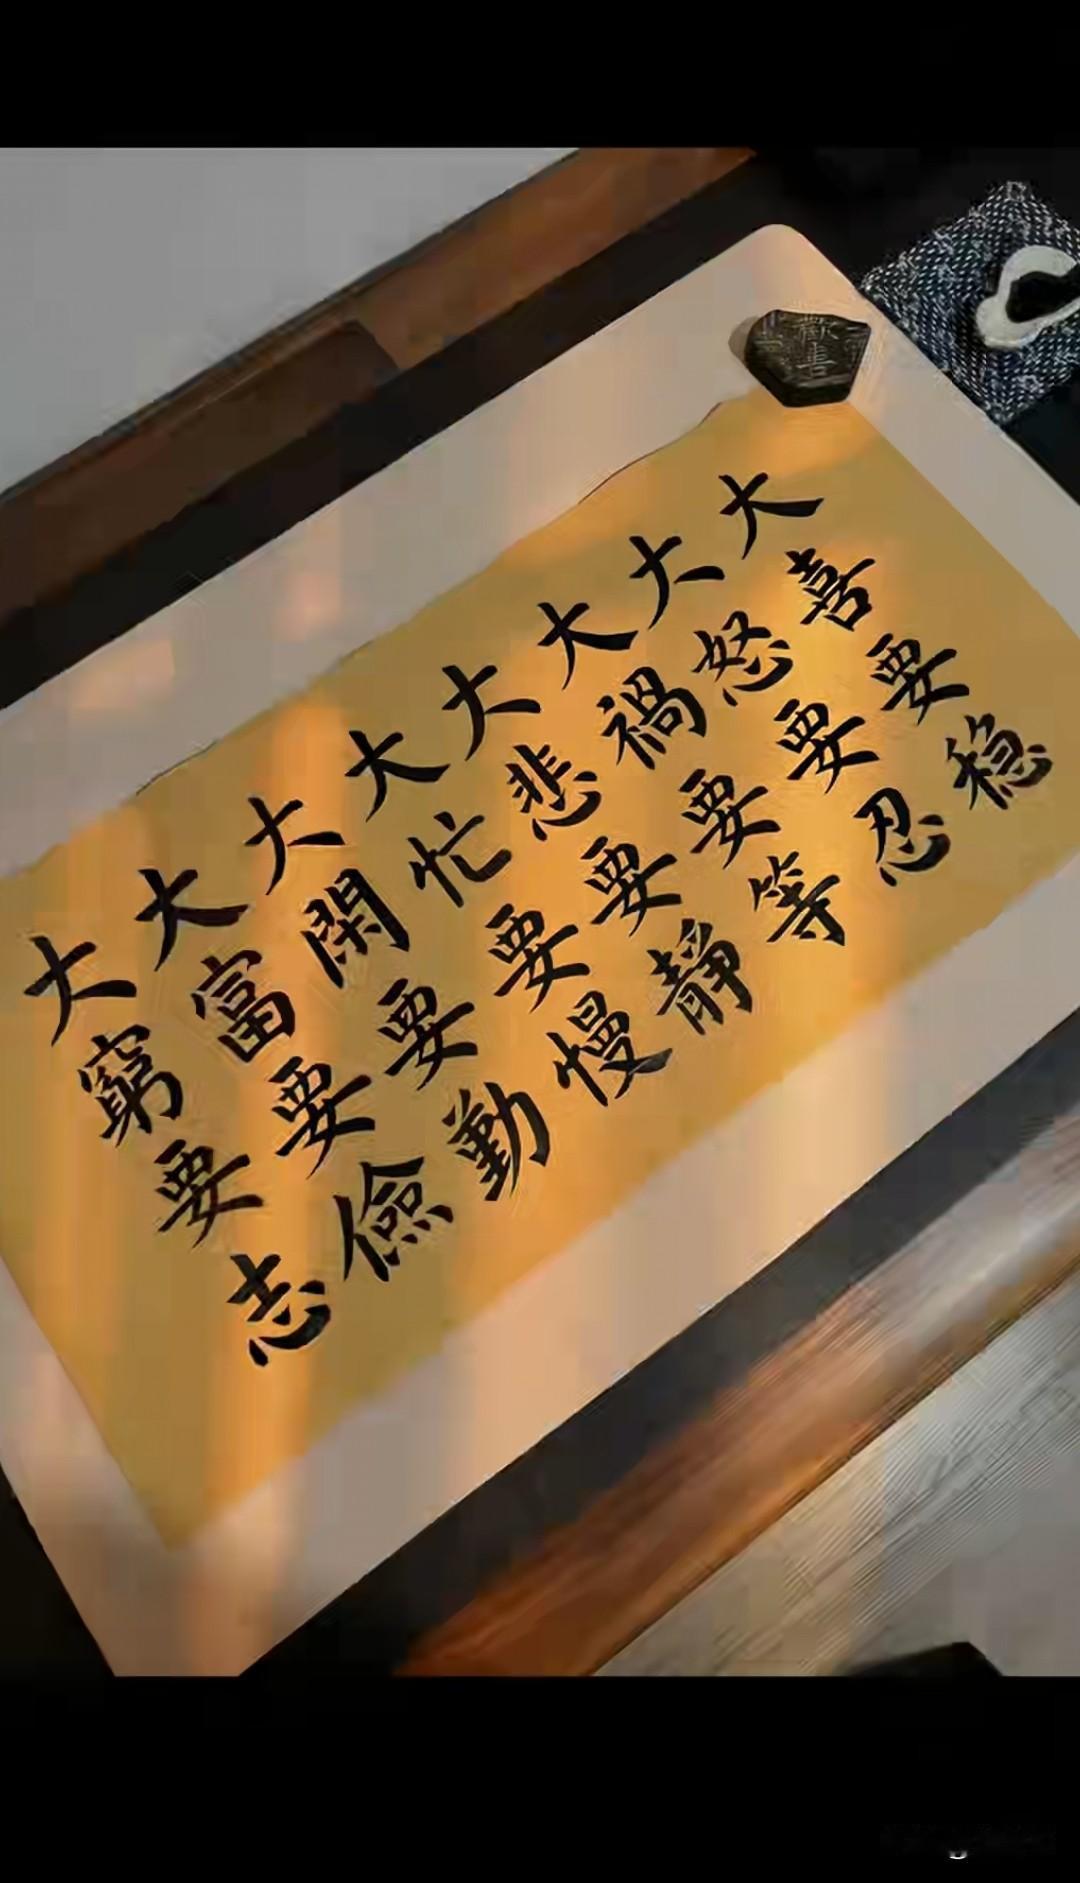 大喜要稳
大怒要忍
大禍要等
大悲要靜
大忙要慢
大閑要勤
大富要儉
大窮要志